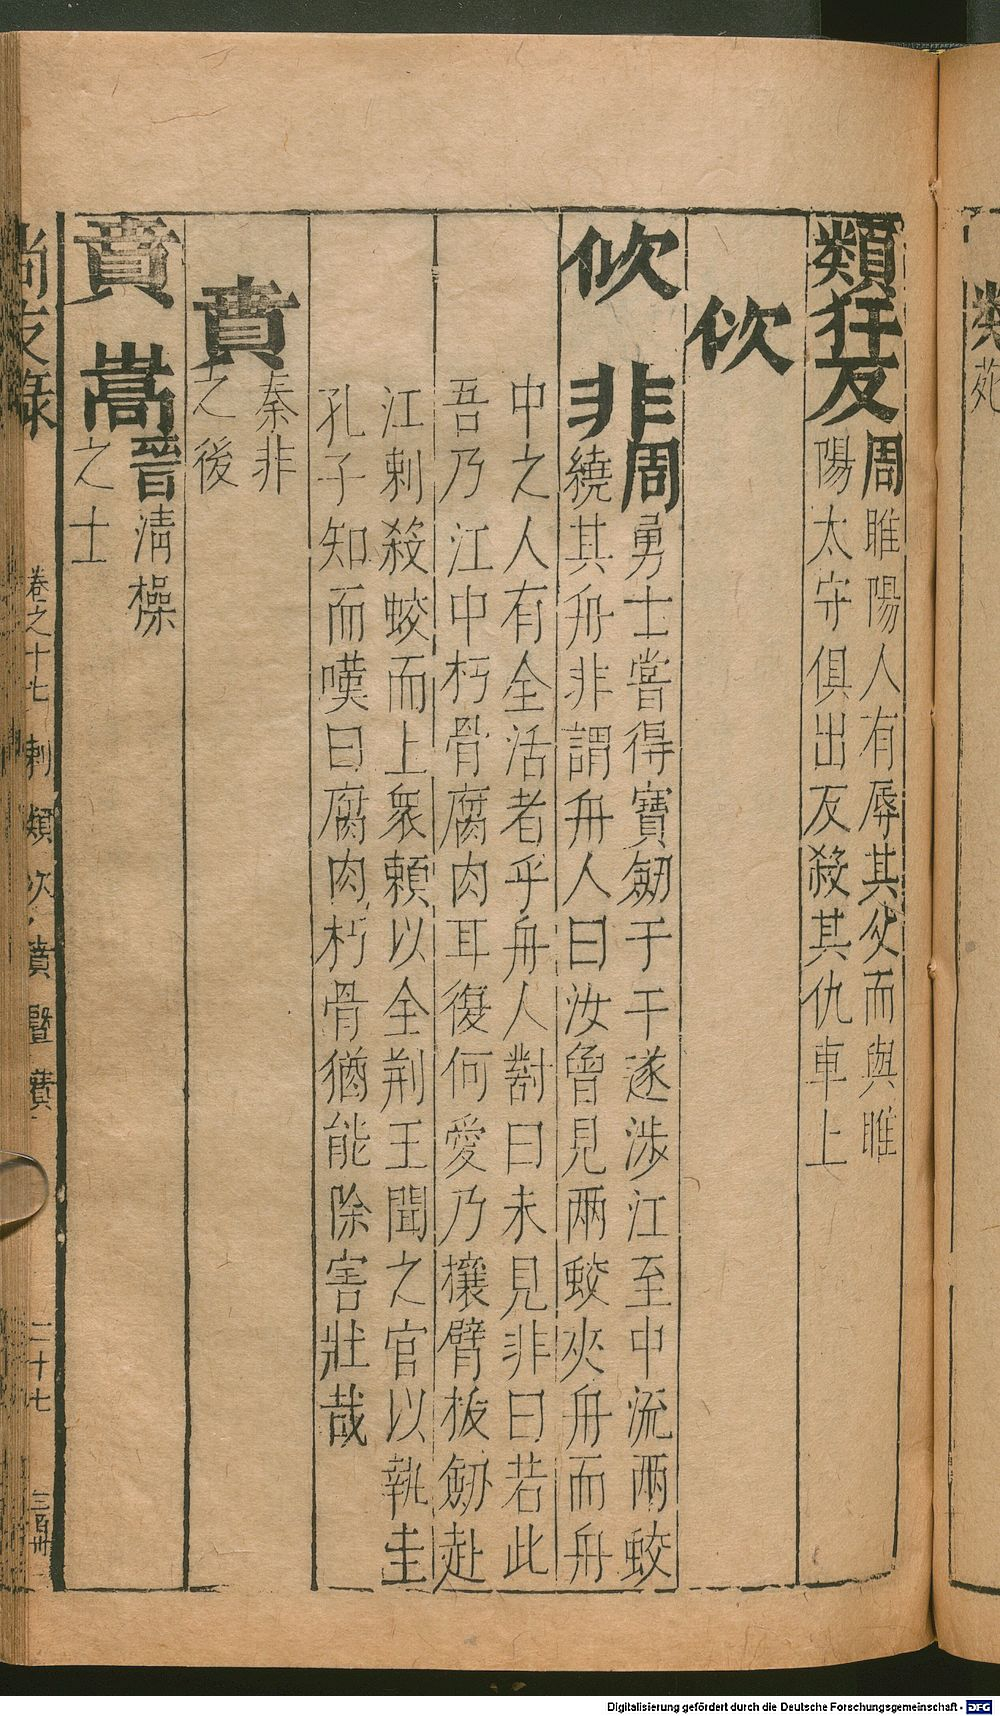 類狂反
周睢陽人有辱其父而與睢
陽太守俱出反殺其仇車上
佽
佽非
周勇士嘗得寶劒于干遂渉江至中流兩蛟
繞其舟非謂舟人曰汝曾見兩蛟夾舟而舟
中之人有全活者乎舟人對曰未見非曰若此
吾乃江中朽骨腐肉耳復何愛乃攘臂拔劒赴
江刺殺蛟而上衆頼以全荆王聞之官以執圭
孔子知而嘆曰腐肉朽骨猶能除害壯哉
賁
秦非
之後
賁嵩
晉淸操
之士
尚友錄
卷之十七
刺類佽賁暨蕢
二十七
三百卅
類
苑
Digitalisierung gefördert durch die Deutsche Forschungsgemeinschaft - DFG